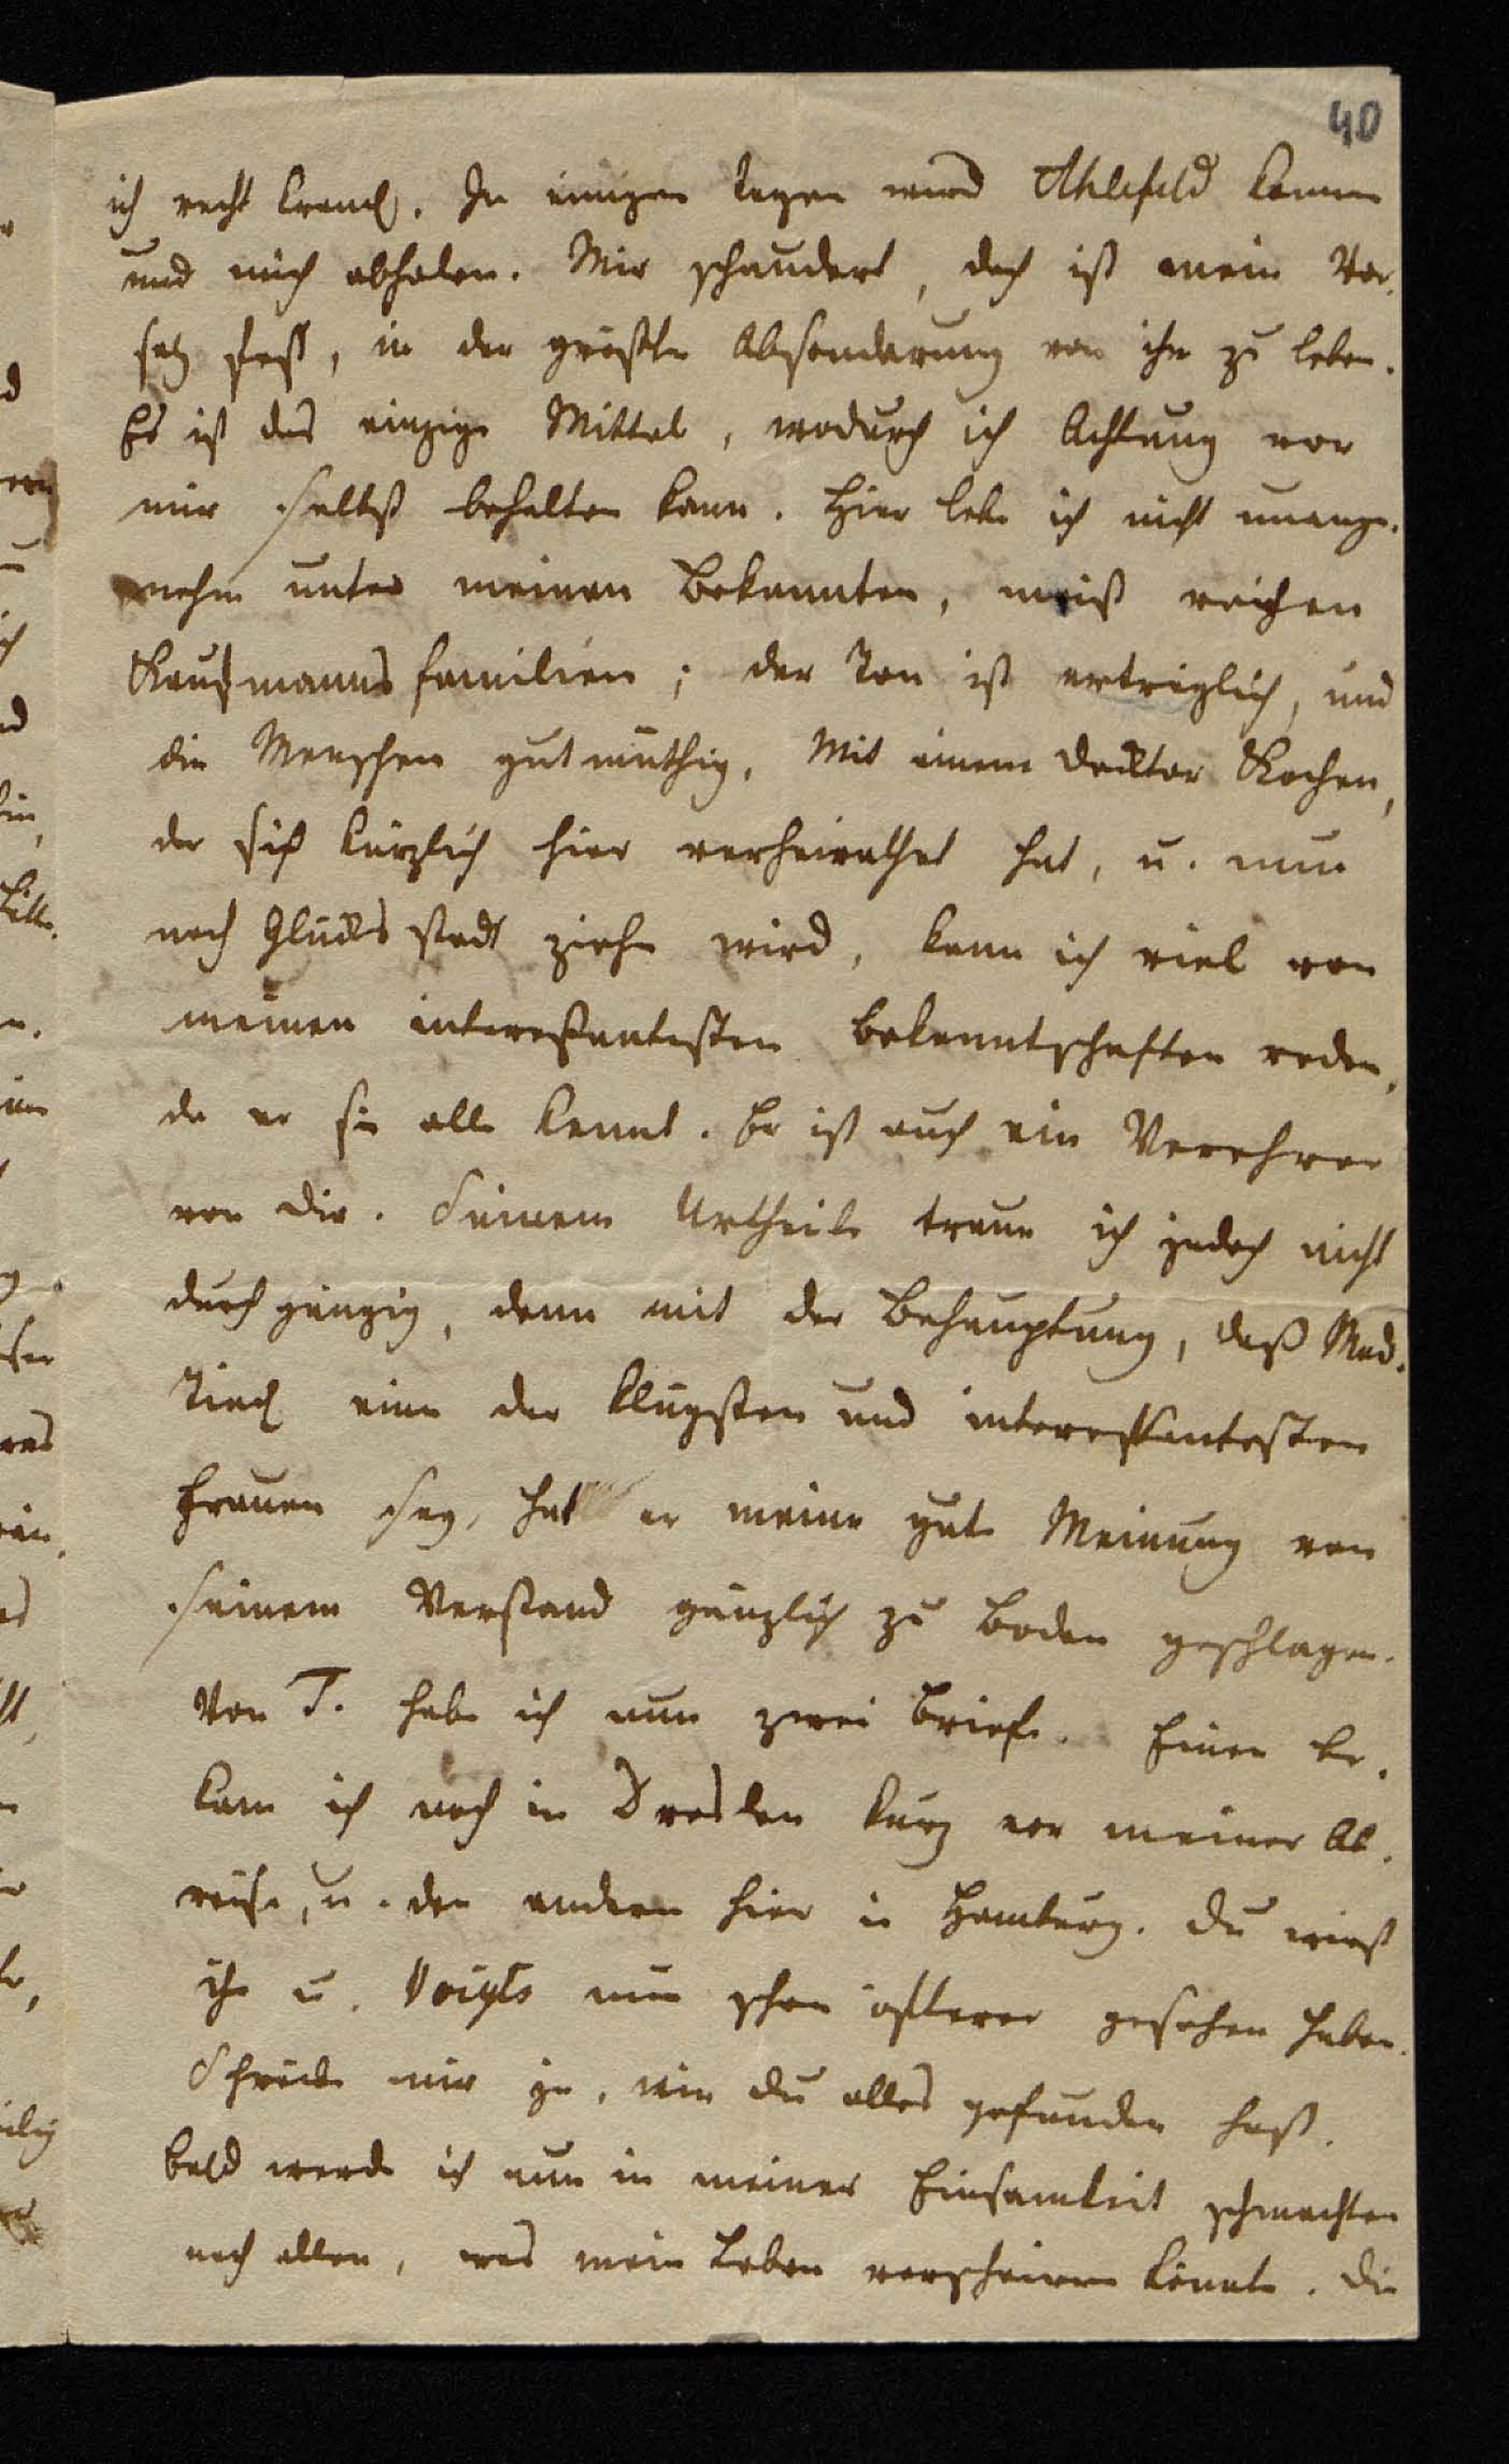 40
ich recht kranck. In einigen Tagen wird Ahlefeld kommen
und mich abholen. Mir schaudert, doch ist mein Vor-
satz fest, in der größten Absonderung von ihm zu leben.
Es ist das einzige Mittel, wodurch ich Achtung vor
mir selbst behalten kann. Hier lebe ich nicht unange-
nehm unter meinen Bekannten, meist reichen
Kaufmanns familien; der Ton ist erträglich, und
die Menschen gutmüthig. Mit einem Docktor Kochen,
der sich kürzlich hier verheirathet hat, u. nun
nach Glücks stadt ziehn wird, kann ich viel von
meinen interessantesten Bekanntschaften reden,
da er sie alle kennt. Er ist auch ein Verehrer
von Dir. Seinem Urtheile traue ich jedoch nicht
durchgängig, denn mit der Behauptung, daß Mad.
Tieck eine der klügsten und interessantesten
Frauen sey, hat er meine gute Meinung von
seinem Verstand gänzlich zu Boden geschlagen.
Von T. habe ich nun zwei Briefe. Einen be-
kam ich noch in Dresden kurz vor meiner Ab-
reise, u. den andern hier in Hamburg. Du wirst
ihn u. Voigts nun schon öfterer gesehen haben.
Schreibe mir ja, wie Du alles gefunden hast.
Bald werde ich nun in meiner Einsamkeit schmachten
nach allen, was mein Leben verschönern könnte. Die